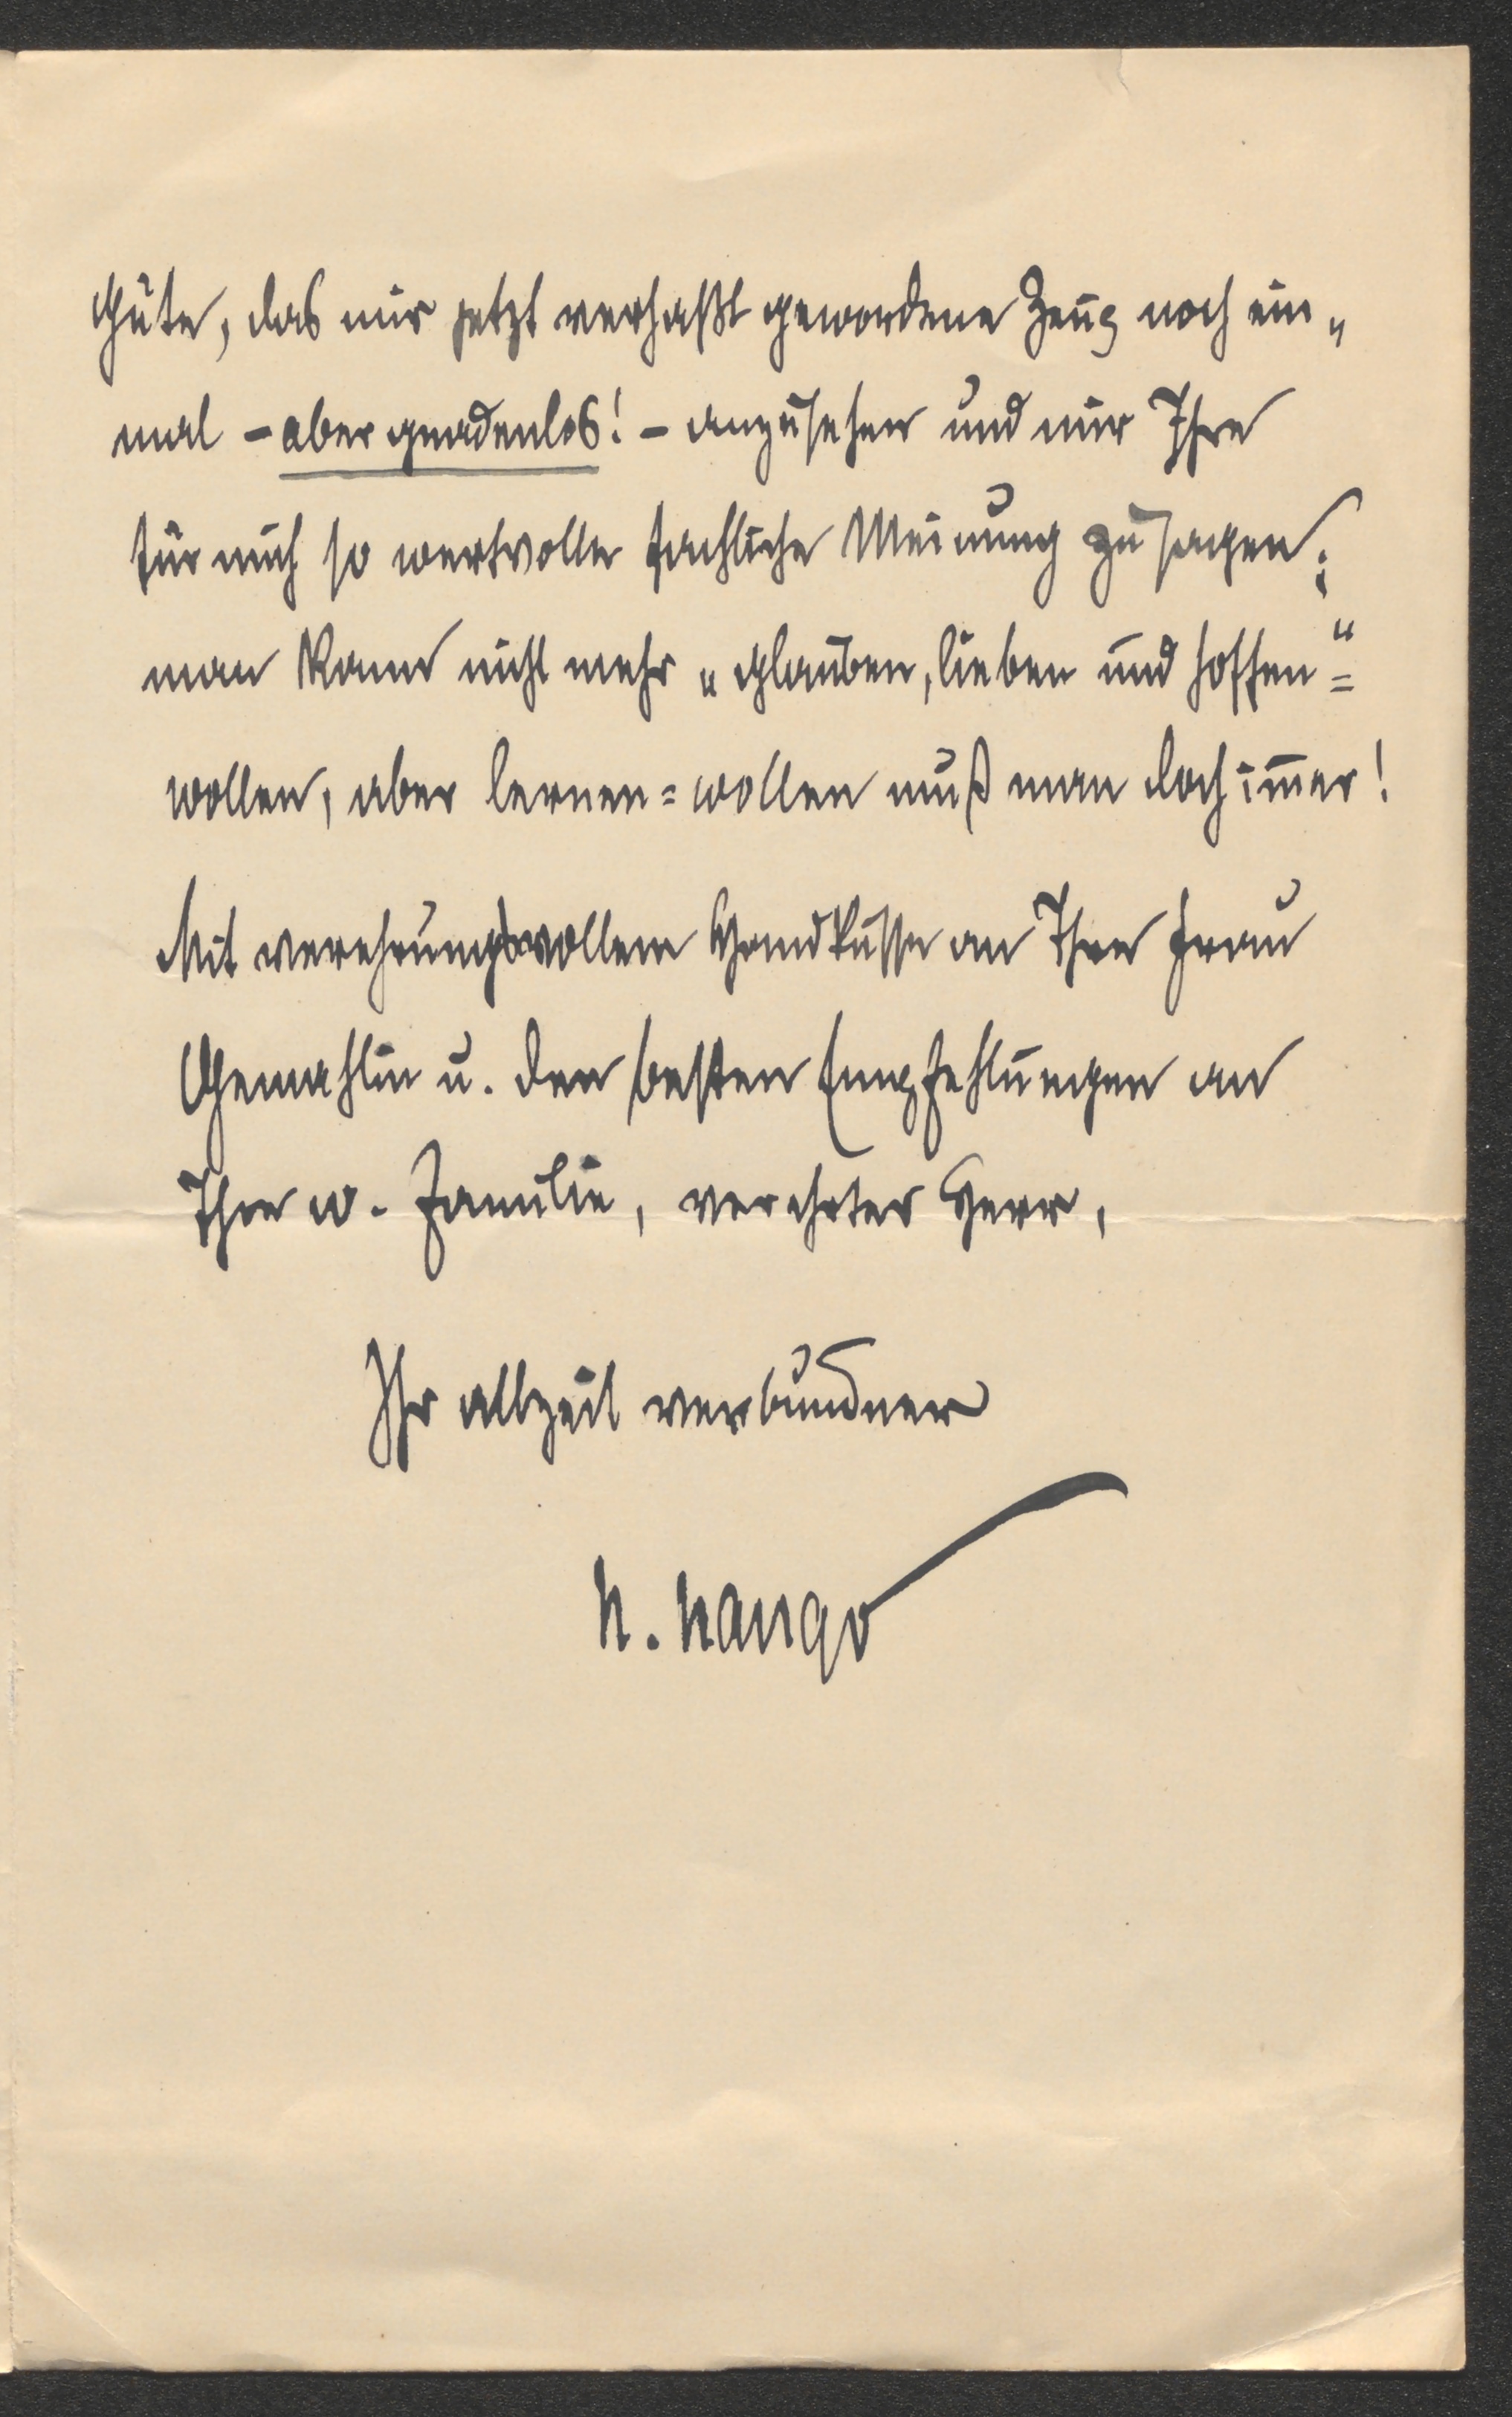 Güte, das mir jetzt verhaßt gewordene Zeug noch ein„
mal – aber gnadenlos! – anzusehen und mir Ihre
für mich so wertvolle fachliche Meinung zu sagen;
man kann nicht mehr „glauben, lieben und hoffen“=
wollen, aber lernen=wollen muß man doch im̅er!
Mit verehrungsvollem Handkusse an Ihre Frau
Gemahlin u. den besten Empfehlungen an
Ihre w. Familie, verehrter Herr,
Ihr allzeit verbundner